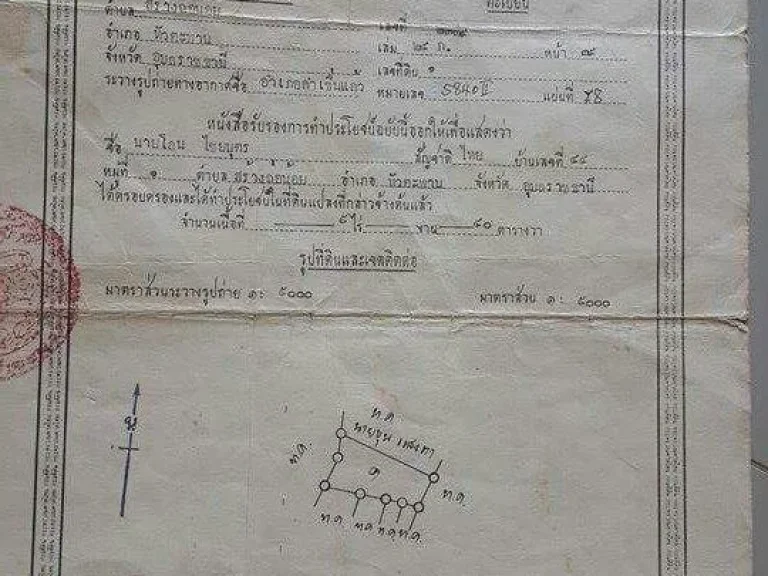 ตำบล สร้างถ่อน้อย
ทะเบียน
เลขที่
อำเภอ หัวตะพาน
เล่ม ๒๙ ก. หน้า
จังหวัด อุบลราชธานี
เลขที่ดิน ๑
ระวางรูปถ่ายทางอากาศชื่อ อำเภออำนาจเจริญ หมายเลข 5840 II แผ่นที่ 78
หนังสือรับรองการทำประโยชน์ฉบับนี้ออกให้เพื่อแสดงว่า
ชื่อ นายโฮม ไชยบุตร สัญชาติ ไทย บ้านเลขที่ ๔๔
หมู่ที่ ๑ ตำบล สร้างถ่อน้อย อำเภอ หัวตะพาน จังหวัด อุบลราชธานี
ได้ครอบครองและได้ทำประโยชน์ในที่ดินแปลงที่กล่าวข้างต้นแล้ว
จำนวนเนื้อที่ ๙ ไร่ งาน ๙๐ ตารางวา
รูปที่ดินและเขตติดต่อ
มาตราส่วนระวางรูปถ่าย ๑ : ๕๐๐๐
มาตราส่วน ๑ : ๕๐๐๐
น
ท.ด.
นายขุน แสงตา
ท.ด.
๑
ท.ด.
ท.ด. ท.ด. ท.ด. ท.ด.